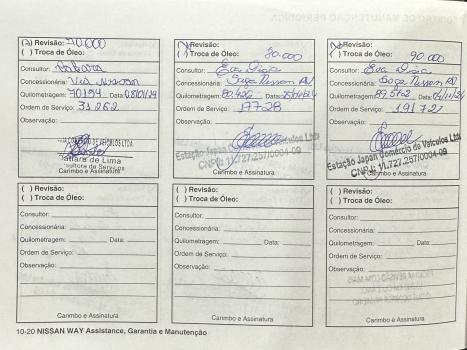 (x) Revisão: 70.000
( ) Troca de Óleo:
Consultor:
Concessionária:
Quilometragem: 70194 Data: 08/01/24
Ordem de Serviço: 31262
Observação:
DE VEICULOS LTDA
de Lima
de Serviços
Carimbo e Assinatura
(x) Revisão:
( ) Troca de Óleo: 80.000
Consultor: Eva
Concessionária: Nissan
Quilometragem: Data:
Ordem de Serviço: 17728
Observação:
Estação Japan Comércio de Veículos Ltda
CNPJ: 11.727.257/0004-09
Carimbo e Assinatura
(x) Revisão:
( ) Troca de Óleo: 90.000
Consultor: Eva
Concessionária: Nissan
Quilometragem: Data:
Ordem de Serviço: 19172
Observação:
Estação Japan Comércio de Veículos Ltda
CNPJ: 11.727.257/0004-09
Carimbo e Assinatura
( ) Revisão:
( ) Troca de Óleo:
Consultor:
Concessionária:
Quilometragem: Data:
Ordem de Serviço:
Observação:
Carimbo e Assinatura
( ) Revisão:
( ) Troca de Óleo:
Consultor:
Concessionária:
Quilometragem: Data:
Ordem de Serviço:
Observação:
Carimbo e Assinatura
( ) Revisão:
( ) Troca de Óleo:
Consultor:
Concessionária:
Quilometragem: Data:
Ordem de Serviço:
Observação:
Carimbo e Assinatura
10-20 NISSAN WAY Assistance, Garantia e Manutenção